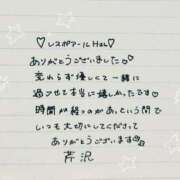 ♡レスポアールHさん♡
ありがとうございました
変わらず優しくて一緒に
過ごせて本当に嬉しかったです
時間が経つのがあっという間で
いつも大切にしてくださって
ありがとうございます
芹沢